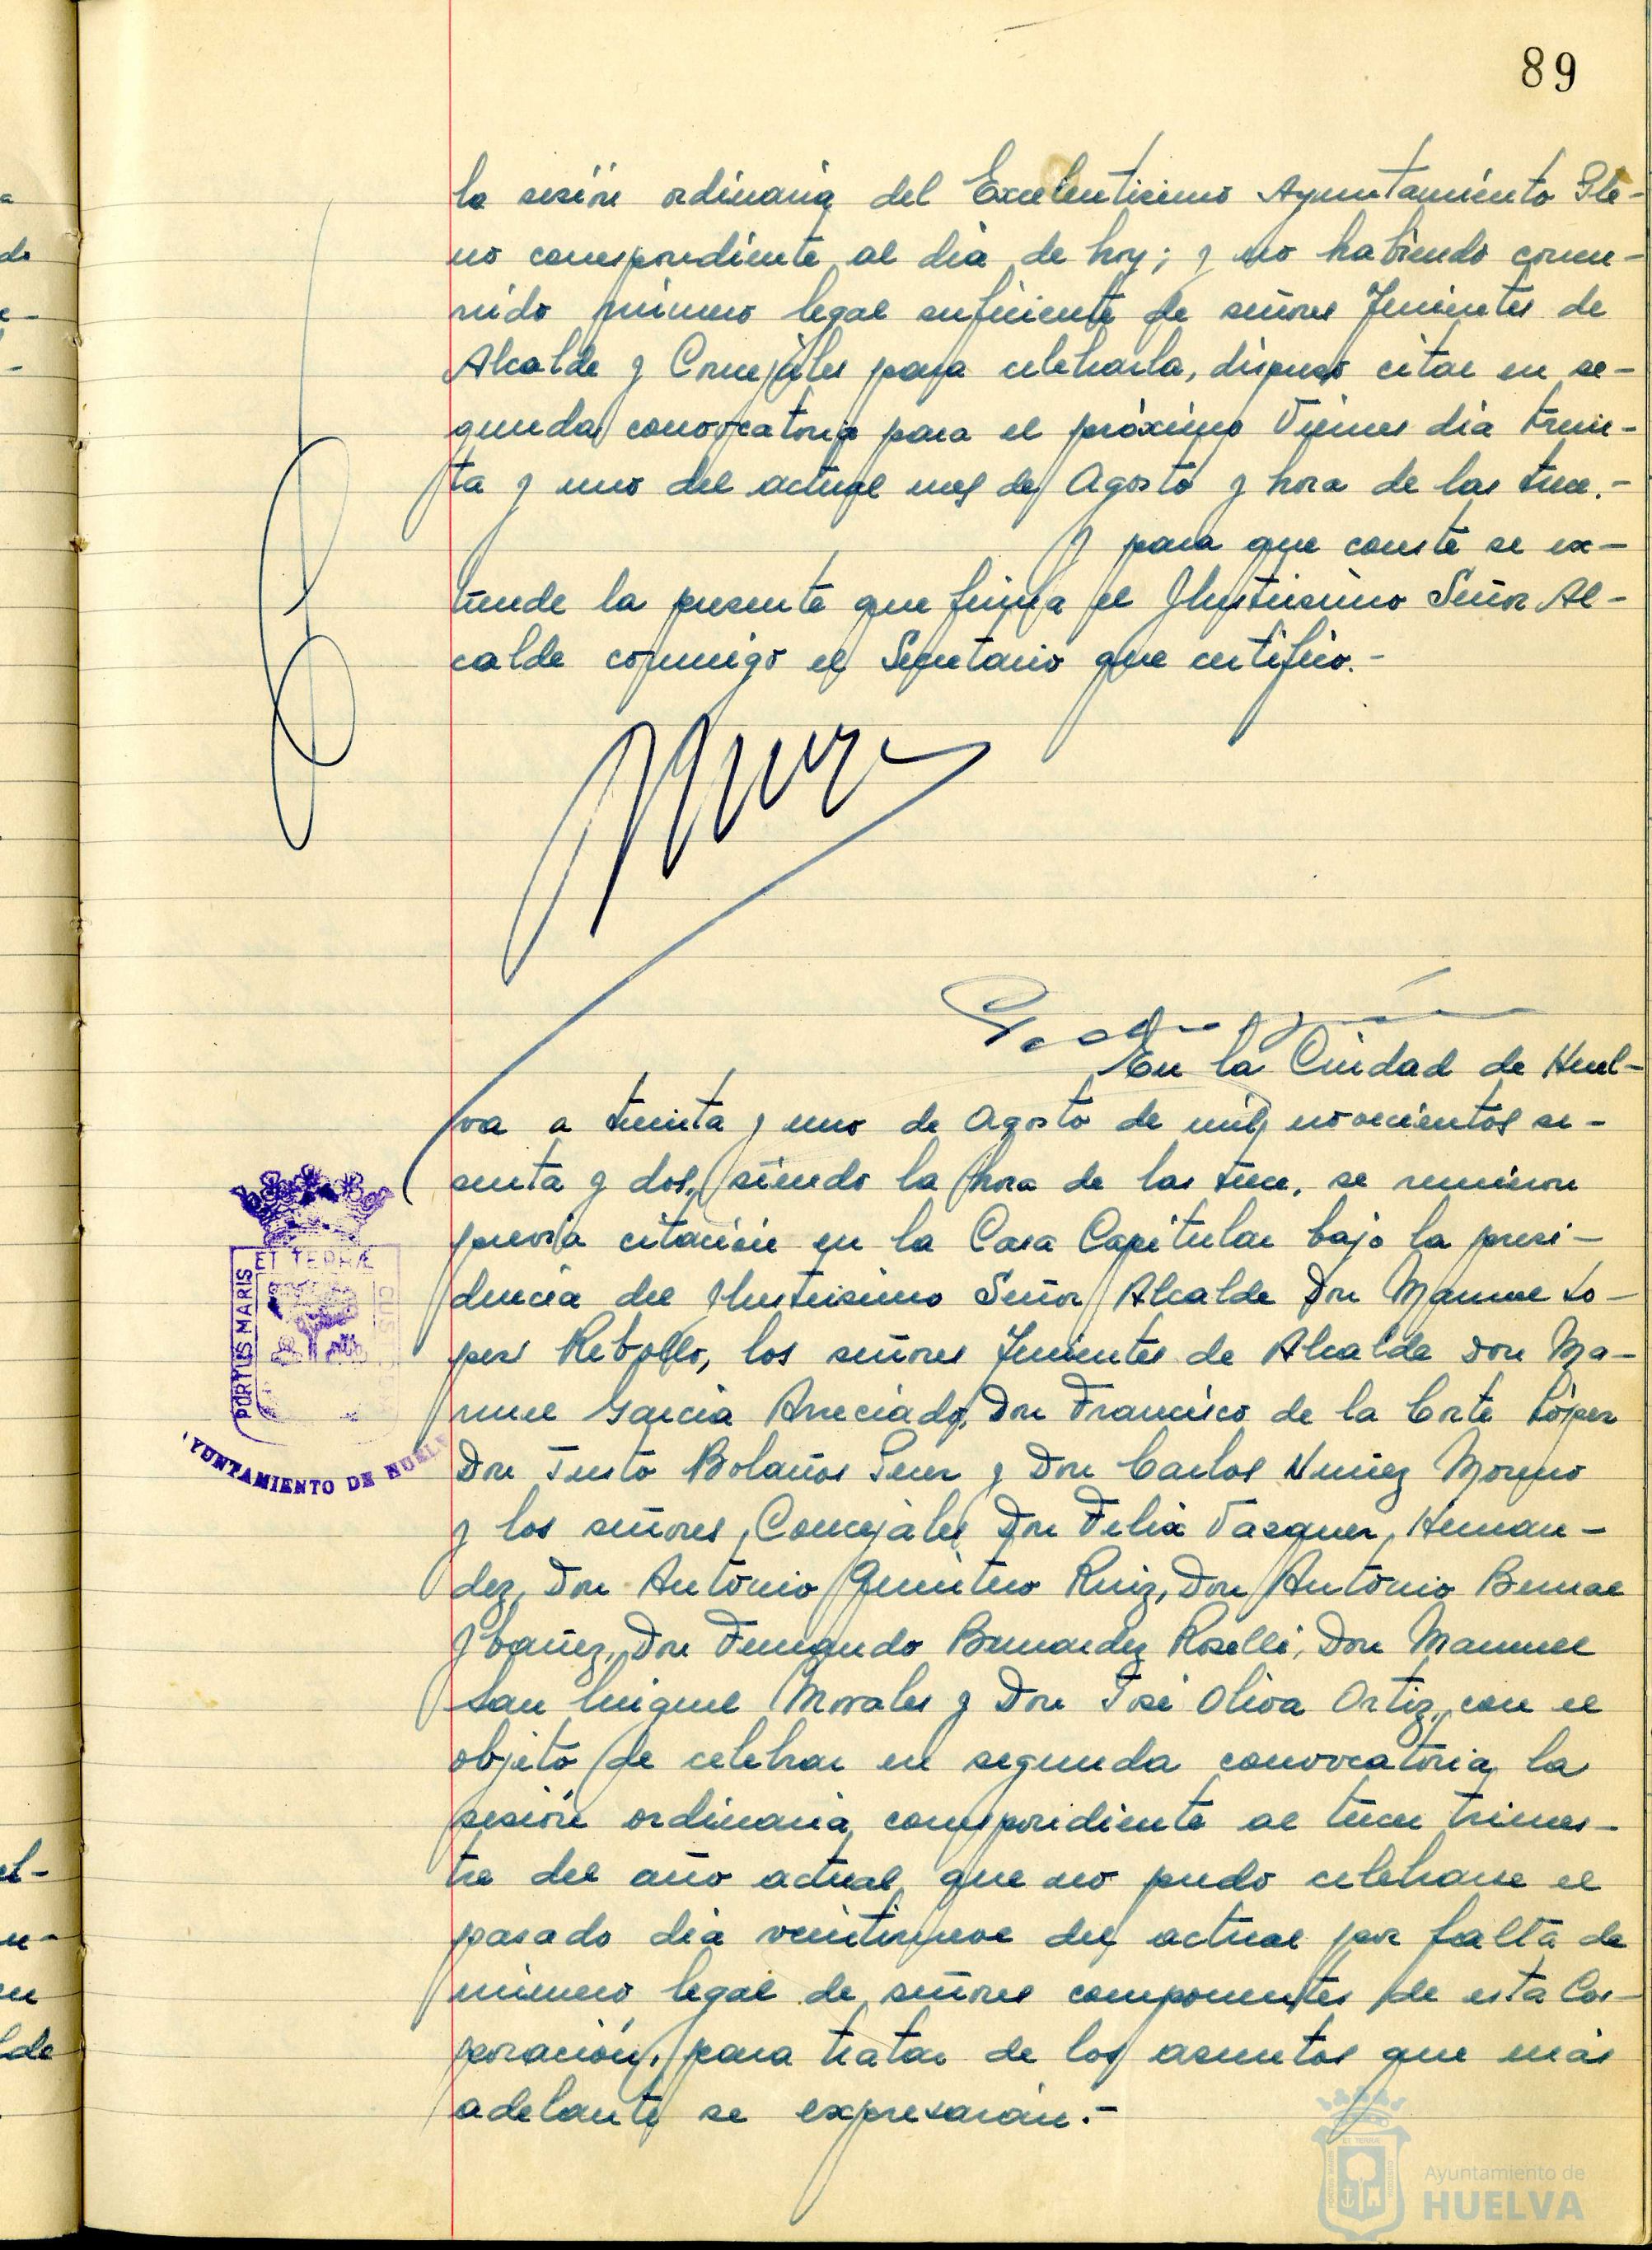 89
la sesión ordinaria del Excelentísimo Ayuntamiento Ple-
no correspondiente al día de hoy; y no habiendo concu-
rrido número legal suficiente de señores Tenientes de
Alcalde y Concejales para celebrarla, dispuso citar en se-
gunda convocatoria para el próximo Viernes día trein-
ta y uno del actual mes de Agosto y hora de las trece.-
Y para que conste se ex-
tiende la presente que firma el Ilustrisimo Señor Al-
calde conmigo el Secretario que certifico.-
En la Ciudad de Huel-
va a treinta y uno de Agosto de mil novecientos se-
senta y dos, siendo la hora de las trece, se reunieron
previa citación en la Casa Capitular bajo la presi-
dencia del Ilustrisimo Señor Alcalde Don Manuel Lo-
pez Rebollo, los señores Tenientes de Alcalde Don Ma-
nuel Garcia Arreciado, Don Francisco de la Corte López
Don Justo Bolaños Perez y Don Carlos Nuñez Moreno
y los señores Concejales Don Felix Vazquez Hernan-
dez, Don Antonio Quintero Ruiz, Don Antonio Bernal
Ybañez, Don Fernando Bermudez Roselli, Don Manuel
San Miguel Morales y Don José Oliva Ortiz, con el
objeto de celebrar en segunda convocatoria la
sesión ordinaria correspondiente al tercer trimes-
tre del año actual que no pudo celebrarse el
pasado día veintinueve del actual por falta de
número legal de señores componentes de esta Cor-
poración, para tratar de los asuntos que más
adelante se expresarán.-
PORTUS MARIS
ET TERRÆ
AYUNTAMIENTO DE HUELVA
Ayuntamiento de
HUELVA